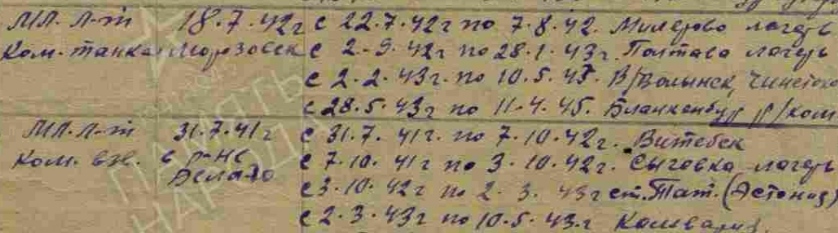 мл. л-т 18.7.42г с 22.7.42г по 7.8.42. Милерово лагерь
Ком. танка Морозовск с 2-9.42г по 28.1.43г. Полтава лагерь
с 2-2.43г. по 10.5.43. В/Волынск,
с 28.5.43г по 11.4.45. Бланкенбург р/ком
мл. л-т 31.7.41г с 31.7.41г. по 7.10.42г. Витебск
Ком. вз. в р-не с 7.10.41г по 3.10.42г. Сычовка лагерь
с 3.10.42г по 2.3.43г ст. Тат. (Эстония)
с 2.3.43г по 10.5.43.г
ПАМЯТЬ
НАРОДА